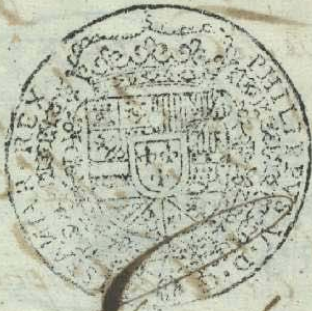 PHILIPPUS · V · D · G ·
HISPANIAR · REX ·